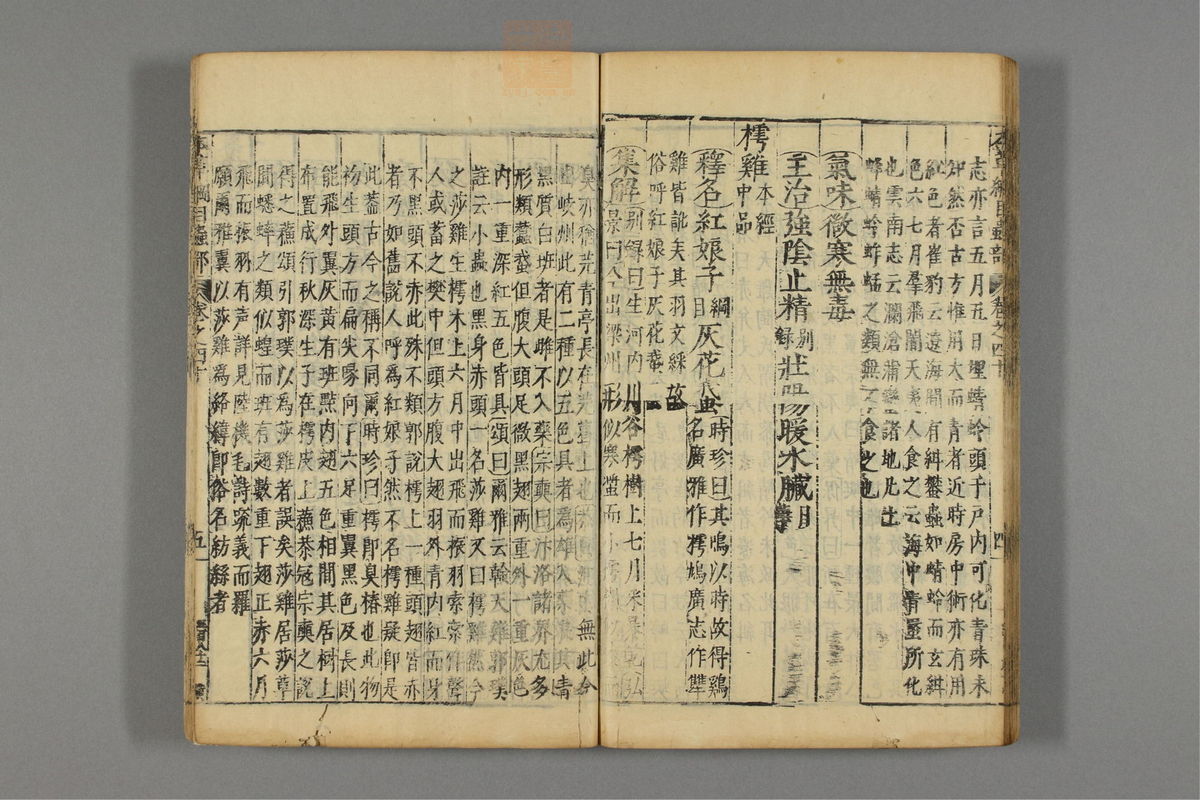 志亦言五月五日埋蜻蛉頭于戶内可化青珠未
知然否古方惟用大而青者近時房中術亦有用
紅色者崔豹云遼海間有紺蠜蟲如蜻蛉而玄紺
色六七月羣飛闇天夷人食之云海中青蝦所化
也雲南志云瀾滄蒲蠻諸地凡土
蜂蜻蛉蚱蜢之類無不食之也
氣味微寒無毒
主治強陰止精別錄壯陽暖水臟日華
樗雞本經中品
釋名紅娘子綱目灰花蛾時珍曰其鳴以時故得鷄
名廣雅作樗鳩廣志作犨
雞皆訛矣其羽文綵故
俗呼紅娘子灰花蛾
集解別錄曰生河内川谷樗樹上七月采
弘景曰今出梁州形似寒螿而小
臭亦猶芫青亭長 無此今
岐州此有二種以五色具者爲雄 其青
黑質白斑者是雌不入藥宗奭曰汴洛諸界尤多
形類蠶蛾但腹大頭足微黑翅兩重外一重灰色
内一重深紅五色皆具頌曰爾雅云螒天雞郭璞
註云小蟲也黑身赤頭一名莎雞又曰樗雞然今
之莎雞生樗木上六月中出飛而振羽索索作聲
人或蓄之樊中但頭方腹大翅羽外青内紅而身
不黑頭不赤此殊不類郭說樗上一種頭翅皆赤
者乃如舊說人呼爲紅娘子然不名樗雞疑即是
此蓋古今之稱不同爾時珍曰樗即臭椿也此物
初生頭方而扁尖喙向下六足重翼黑色及長則
能飛外翼灰黃有斑點内翅五色相間其居樹上
布置成行秋深生子在樗皮上蘇恭冠宗奭之說
得之蘇頌引郭璞以爲莎雞者誤矣莎雞居莎草
間蟋蟀之類似蝗而斑有翅數重下翅正赤六月
飛而振羽有声詳見陸機毛詩疏義而羅
願爾雅翼以莎雞爲絡緯即俗名紡絲者